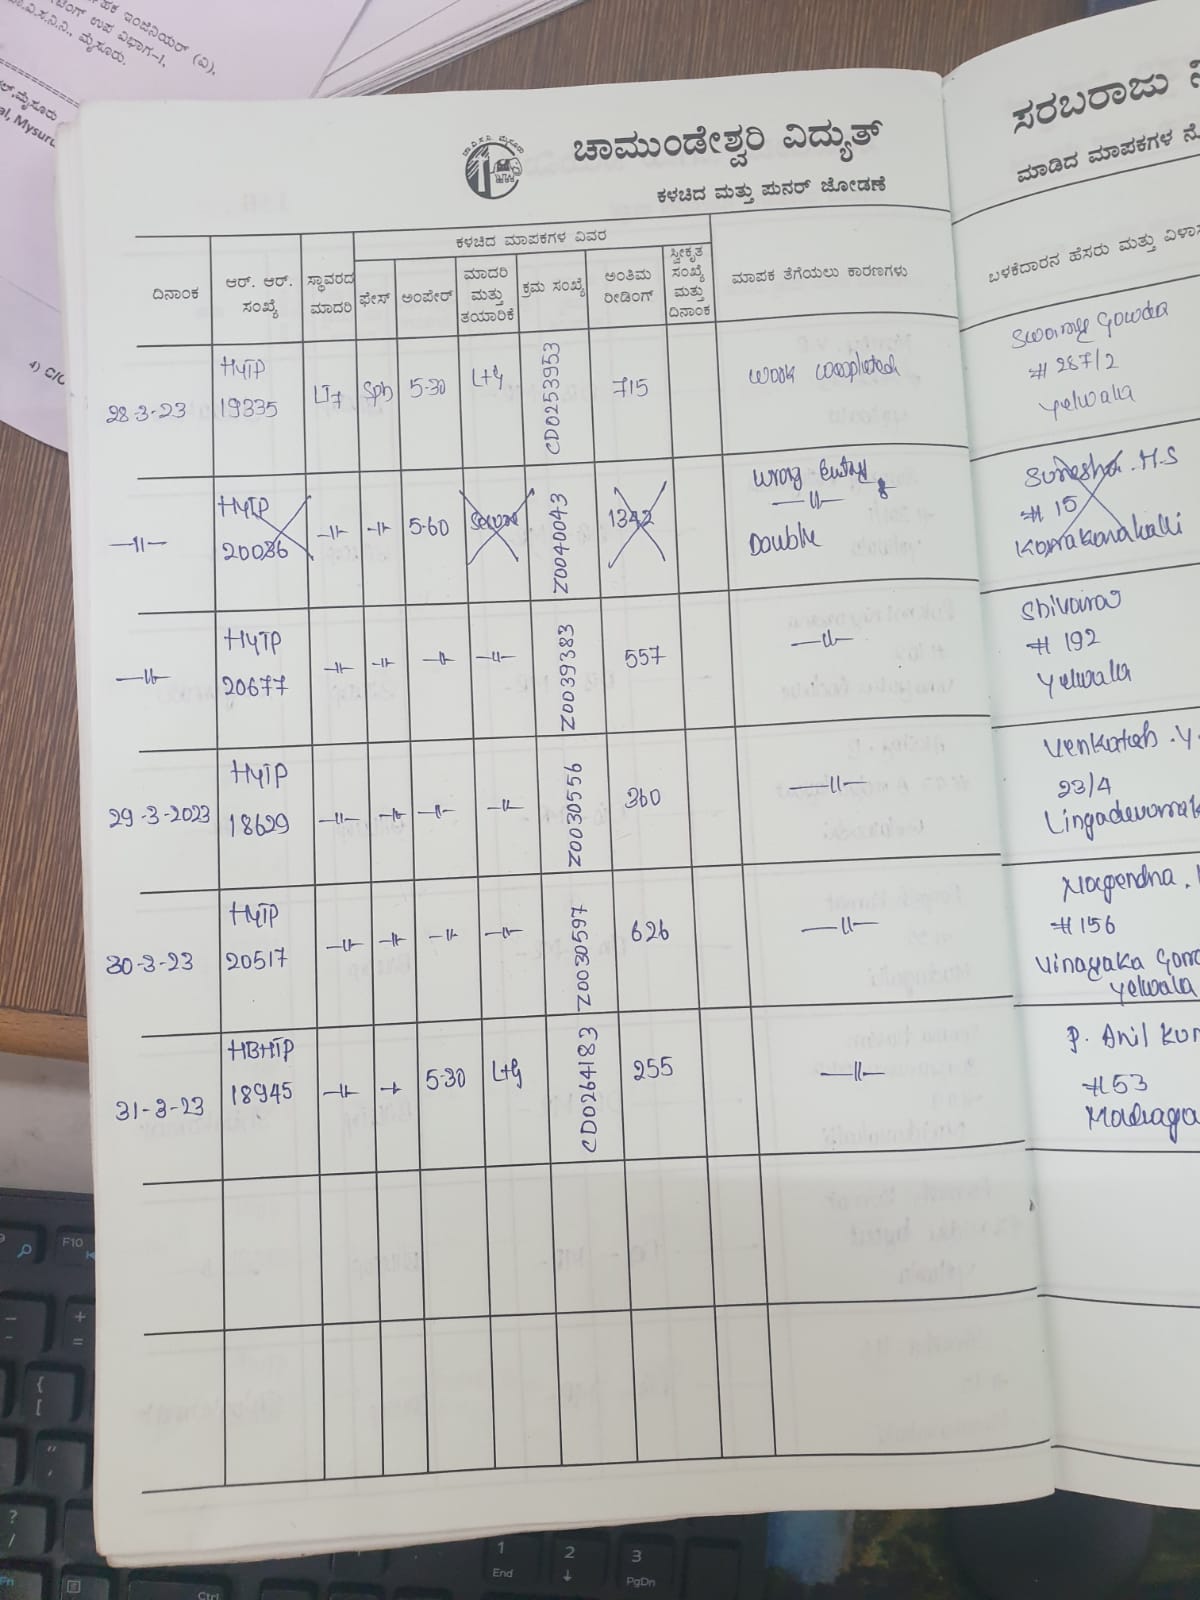 ಇಂಜಿನಿಯರ್ (ವಿ),
ಉಪ ವಿಭಾಗ-1,
ಮೈಸೂರು.
ಮೈಸೂರು
ಚಾಮುಂಡೇಶ್ವರಿ ವಿದ್ಯುತ್
ಸರಬರಾಜು
ಕಳಚಿದ ಮತ್ತು ಪುನರ್ ಜೋಡಣೆ
ಮಾಡಿದ ಮಾಪಕಗಳ
ಕಳಚಿದ ಮಾಪಕಗಳ ವಿವರ
ದಿನಾಂಕ
ಆರ್. ಆರ್. ಸಂಖ್ಯೆ
ಸ್ಥಾವರದ ಮಾದರಿ
ಫೇಸ್
ಅಂಪೇರ್
ಮಾದರಿ ಮತ್ತು ತಯಾರಿಕೆ
ಕ್ರಮ ಸಂಖ್ಯೆ
ಅಂತಿಮ ರೀಡಿಂಗ್
ಸ್ವೀಕೃತ ಸಂಖ್ಯೆ ಮತ್ತು ದಿನಾಂಕ
ಮಾಪಕ ತೆಗೆಯಲು ಕಾರಣಗಳು
ಬಳಕೆದಾರನ ಹೆಸರು ಮತ್ತು
28-3-23 HYTP 19335 LT7 Sph 5-30 L+G CD0253953 715 work completed
Swamy Gowda
# 287/2
Yelwala
—11— HYTP 20086 —11— —11— 5-60 Secure Z0040043 1342 wrong Entry —11— Double
Suresha.H.S
# 15
—11— HYTP 20677 —11— —11— —11— —11— Z0039383 557 —11—
Shivaraj
# 192
Yelwala
29-3-2023 HYTP 18629 —11— —11— —11— —11— Z0030556 360 —11—
Venkatesh.Y.
23/4
30-3-23 HYTP 20517 —11— —11— —11— —11— Z0030597 626 —11—
Nagendra.
# 156
Vinayaka
Yelwala
31-3-23 HBHTP 18945 —11— —11— 5-30 L+G CD0264183 255 —11—
P. Anil
#53
F10
1 End
2
3 PgDn
Ctrl
Fn